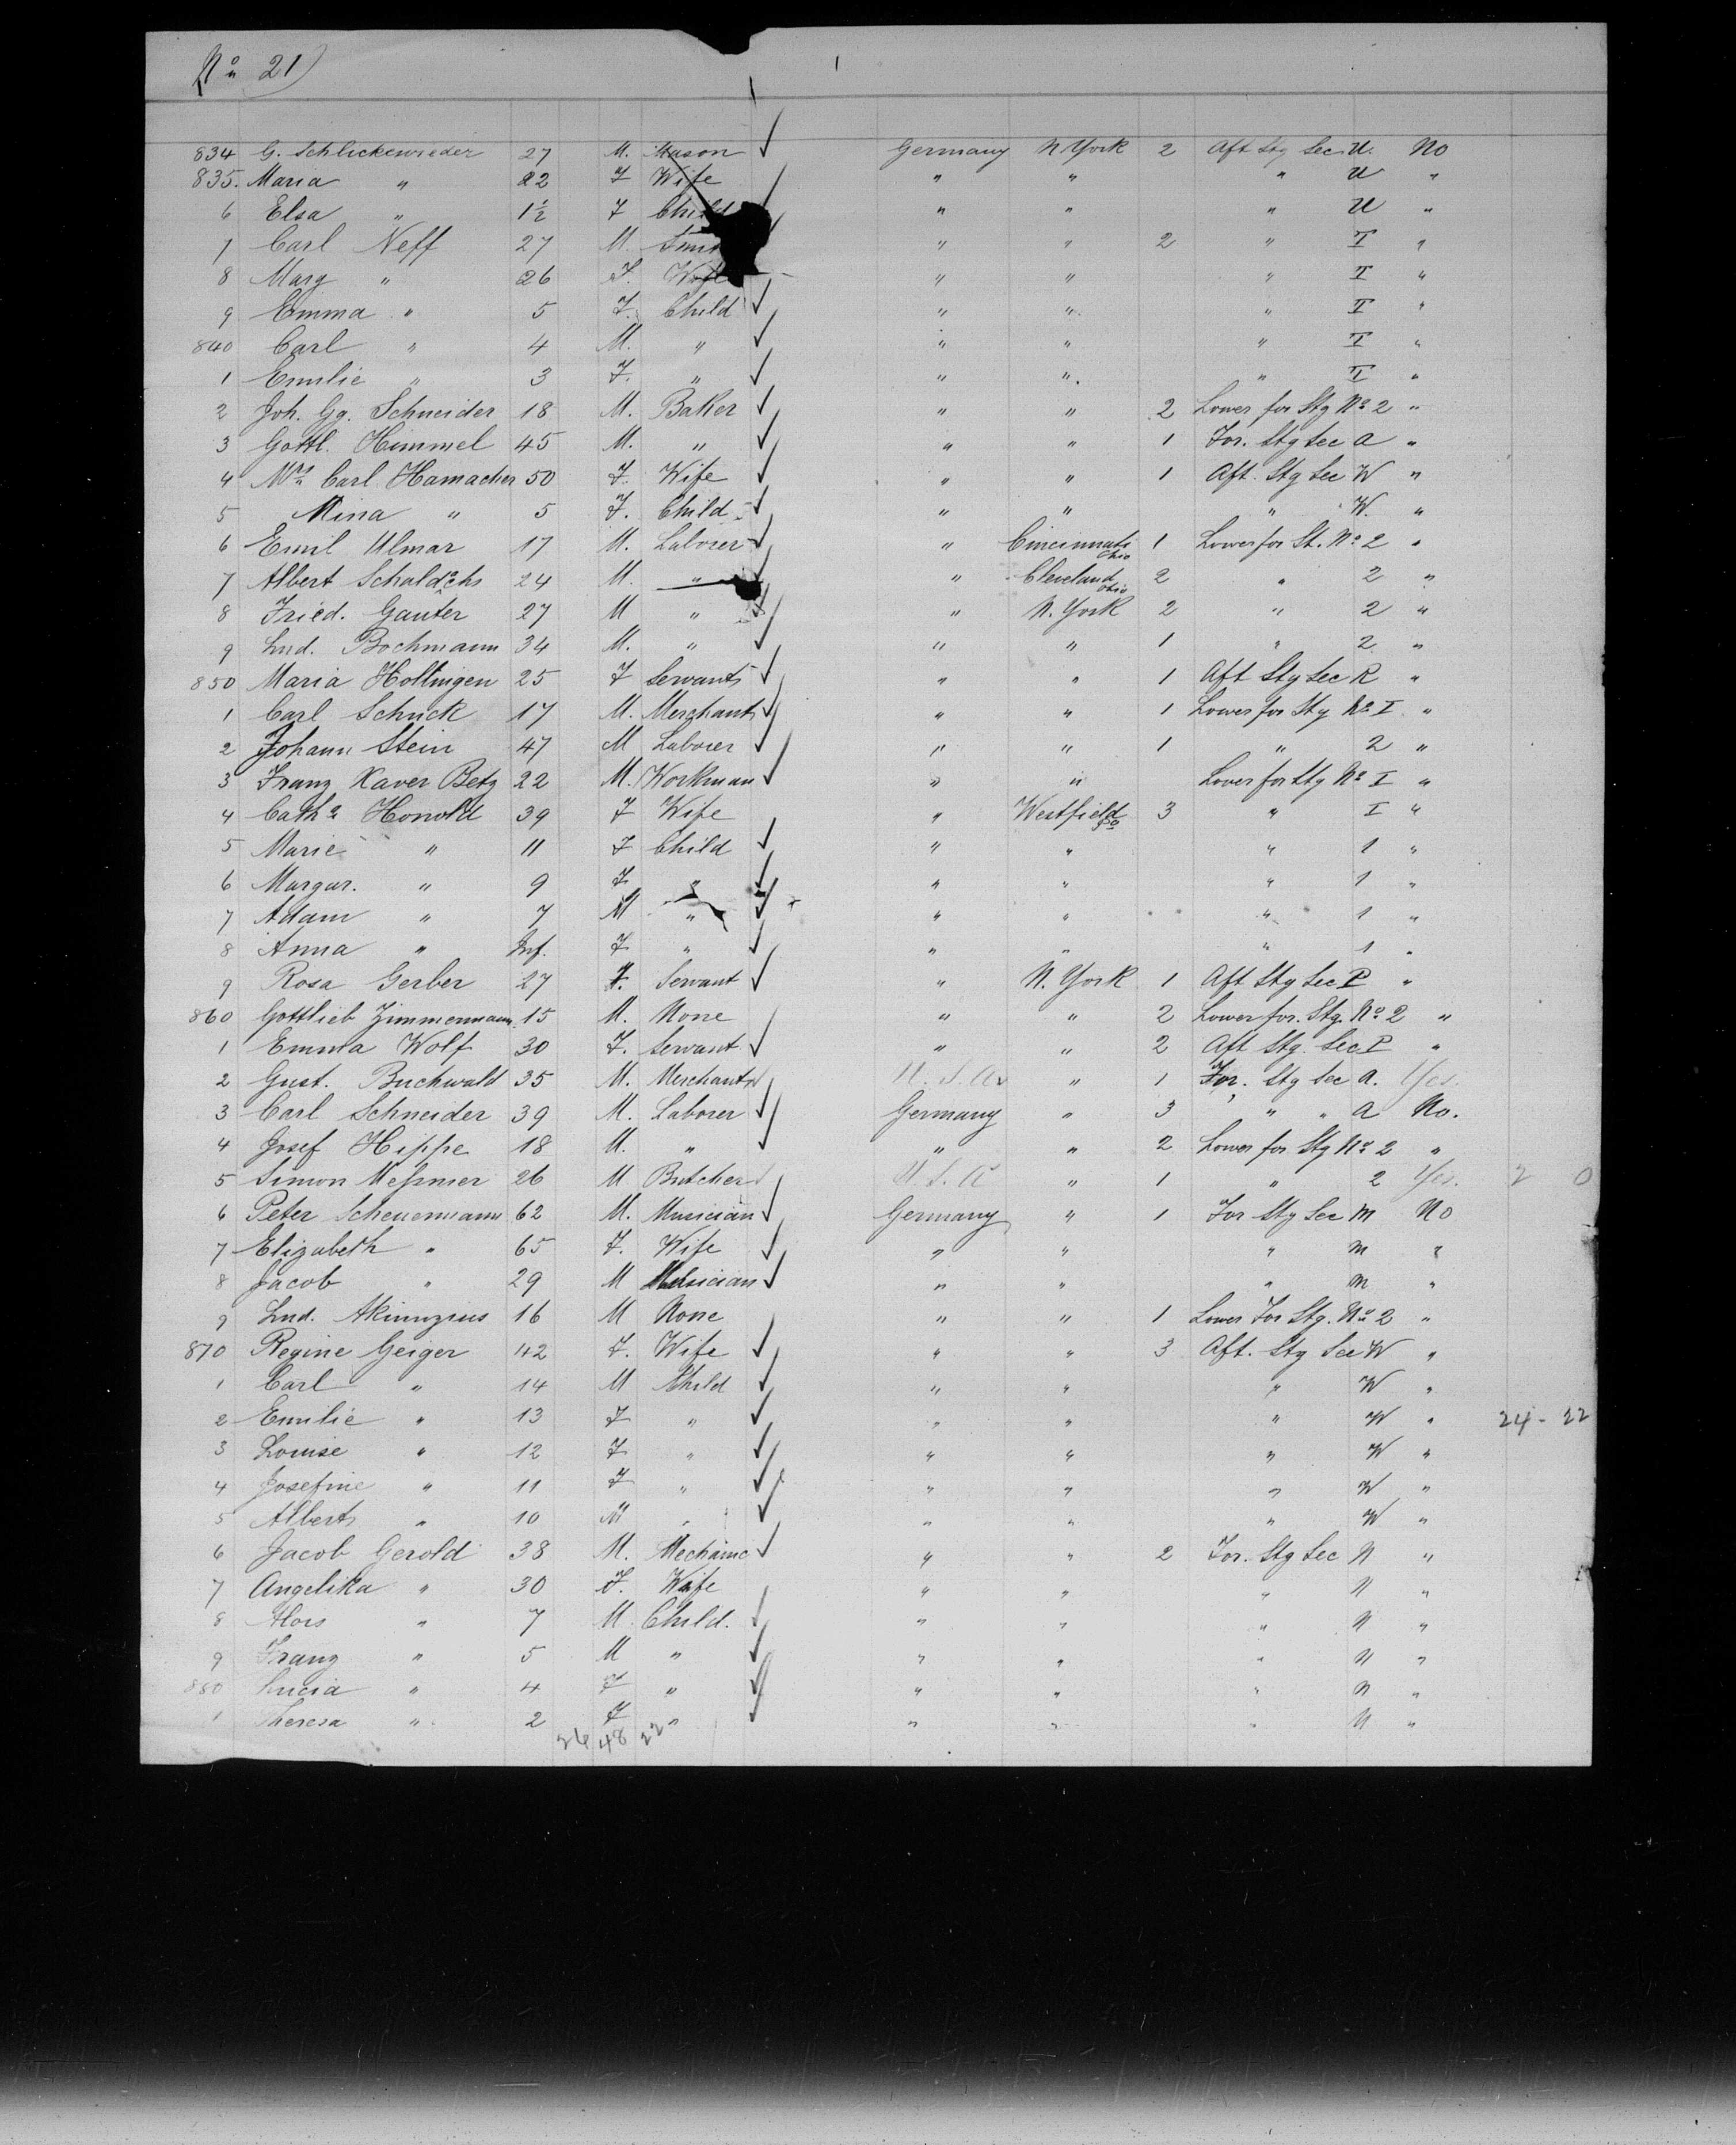 No 21)
834 G. Schlickenrieder 27 M. Mason Germany N. York 2 Aft Stg Sec U. No
835. Maria " 22 F Wife " " " U "
6 Elsa " 1½ F Child " " " U "
7 Carl Neff 27 M. " " 2 " T "
8 Marg " 26 F. Wife " " " T "
9 Emma " 5 F. Child " " " T "
840 Carl " 4 M. " " " " T "
1 Emilie " 3 F. " " " " T "
2 Joh. Gg. Schneider 18 M. Baker " " 2 Lower for Stg No 2 "
3 Gottl. Himmel 45 M. " " " 1 For. Stg Sec A "
4 Mrs Carl Hamacher 50 F. Wife " " 1 Aft. Stg Sec W "
5 Mina " 5 F. Child " " " W. "
6 Emil Ulmar 17 M. Laborer " Cincinnati Ohio 1 Lower for St. No 2 "
7 Albert 24 M. " " Cleveland Ohio 2 " 2 "
8 Fried. Gauter 27 M " " N. York 2 " 2 "
9 Lud. Bochmann 34 M. " " " 1 " 2 "
850 Maria Hollingen 25 F Servant " " 1 Aft Stg Sec R "
1 Carl Schick 17 M. Merchant " " 1 Lower for Stg No I "
2 Johann Stein 47 M Laborer " " 1 " 2 "
3 Franz Xaver Betz 22 M. Workman " " Lower for Stg No I "
4 Catha Honold 39 F Wife " Westfield 3 " I "
5 Marie " 11 F Child " " " 1 "
6 Margar. " 9 F " " " " 1 "
7 Adam " 7 M " " " " 1 "
8 Anna " Inf. F " " " " 1 "
9 Rosa Gerber 27 F. Servant " N. York 1 Aft Stg Sec P "
860 Gottlieb Zimmermann 15 M. None " " 2 Lower for. Stg. No 2 "
1 Emma Wolf 30 F. Servant " " 2 Aft Stg. Sec P "
2 Gust. Buchwald 35 M. Merchant U.S.A. " 1 For. Stg Sec A. Yes.
3 Carl Schneider 39 M. Laborer Germany " 3 " " A No.
4 Josef Hippe 18 M. " " " 2 Lower for Stg No 2 "
5 Simon Meßmer 26 M Butcher U.S.A " 1 " 2 Yes. 2 0
6 Peter Scheuermann 62 M. Musician Germany " 1 For Stg Sec M No
7 Elizabeth " 65 F. Wife " " " M "
8 Jacob " 29 M Musician " " " M "
9 Lud. 16 M None " " 1 Lower For Stg. No 2 "
870 Regine Geiger 42 F. Wife " " 3 Aft. Stg Sec W "
1 Carl " 14 M Child " " " W "
2 Emilie " 13 F " " " " W " 24 - 22
3 Louise " 12 F " " " " W "
4 Josefine " 11 F " " " " W "
5 Albert " 10 M " " " " W "
6 Jacob Gerold 38 M. Mechanic " " 2 For. Stg Sec N "
7 Angelika " 30 F. Wife " " " N "
8 Alois " 7 M Child. " " " N "
9 Franz " 5 M " " " " N "
880 Lucia " 4 F " " " " N "
1 Theresa " 2 F " " " " N "
26 48 22